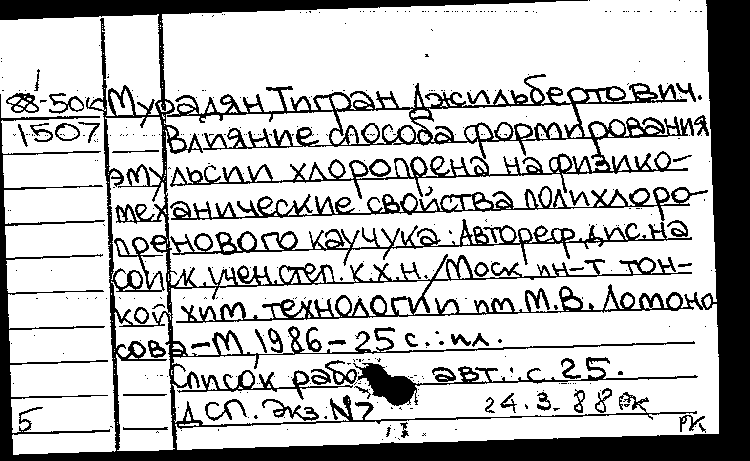 88-50к Мурадян, Тигран Джильбертович.
1507 Влияние способа формирования
эмульсии хлоропрена на физико-
механические свойства полихлоро-
пренового каучука: Автореф. дис. на
соиск. учен. степ. к.х.н. / Моск. ин-т тон-
кой хим. технологии им. М.В. Ломоно
сова - М., 1986. - 25 с.: ил.
Список авт.: с. 25.
5 ДСП. Экз. N7 24.3.88
РК